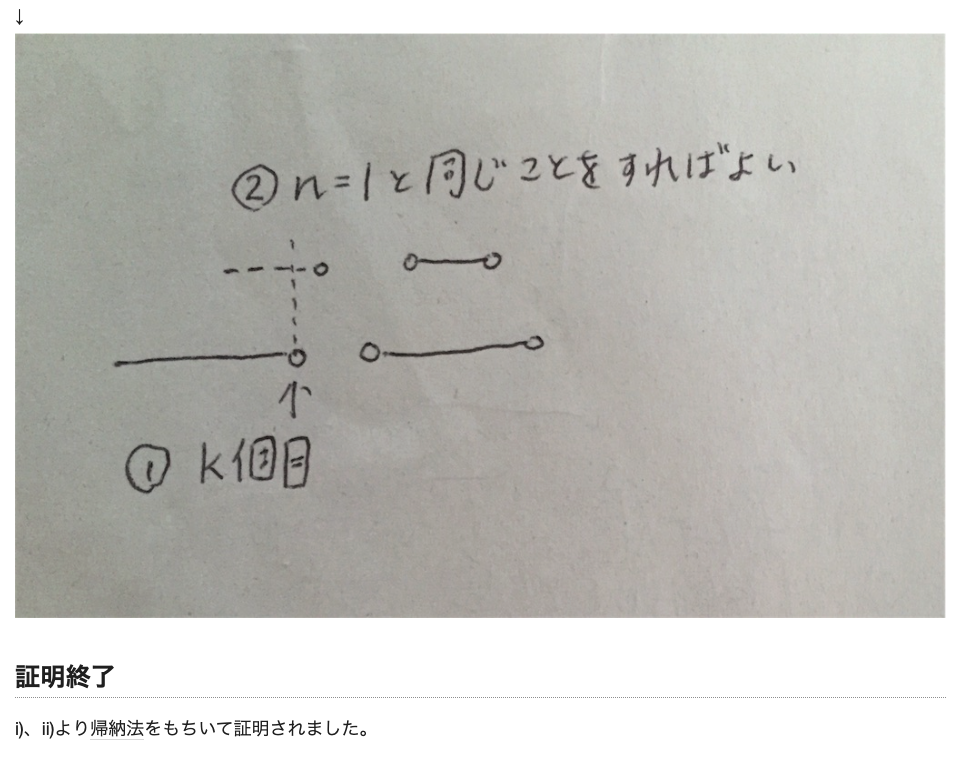 ↓
② n=1と同じことをすればよい
↑
① k個目
証明終了
i)、ii)より帰納法をもちいて証明されました。